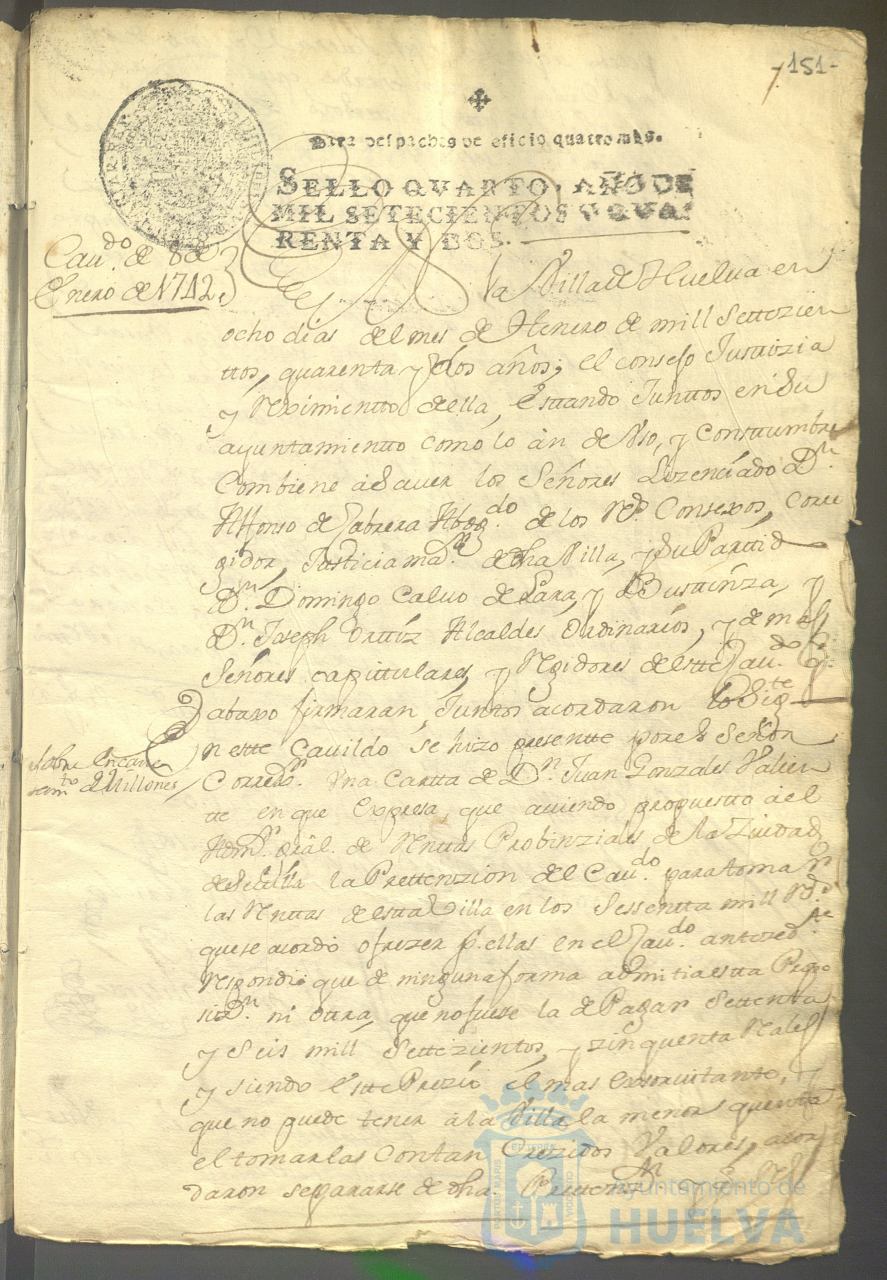 151-
Para despachos de oficio quatro mrs.
SELLO QVARTO, AÑO DE
MIL SETECIENTOS Y QVA-
RENTA Y DOS.
Cau.do de 8 de
Enero de 1742.
la Villa de Huelva en
ocho dias del mes de Henero de mill Settezien
ttos, quarenta y dos años; el consejo Justtizia
y Reximientto de ella, Esttando Junttos en su
ayuntamientto como lo àn de Vso, y Consttumbre
Combiene à Sauer los Señores Lizenciado D.n
Alfonso de Cabrera Abog.do de los R.s Consexos, Corre
gidor, Justicia ma.r de dha Villa, y su Parttido
D.n Domingo Calvo de Lara, y Busttinza, y
D.n Joseph Orttiz Alcaldes Ordinarios, y demas
Señores capittulares, y Rejidores de estte Cau.do q
abaxo firmaran, Juntos acordaron lo Sig.te
Sobre Encaue
zam.to de Millones
En estte Cauildo se hizo presentte por el Señor
Correx.r Vna Cartta de D.n Juan Gonzales Valien
tte en que Expresa, que auiendo propuestto àel
Adm.r gràl. de Rnttas Probinziales de la Ziudad
de Seuilla la Prettenzion del Cau.do para tomar
las Rnttas de estta Villa en los Sessentta mill R.s
que se acordó ofrezer p.r ellas en el Cau.do anteced.te
Respondiò que de ninguna forma admitia estta Propo
siz.n ni ottra, que no fuese la de Pagar Settenta
y Seis mill Settezientos, y zinquenta Reales
y siendo estte Prezio el mas exsorvitante, y
que no puede tener à la Villa la menor quentta
el tomarlas Con tan Crezidos Valores, acor
daron separarse de dha Pretten.n y
Ayuntamiento de
HUELVA